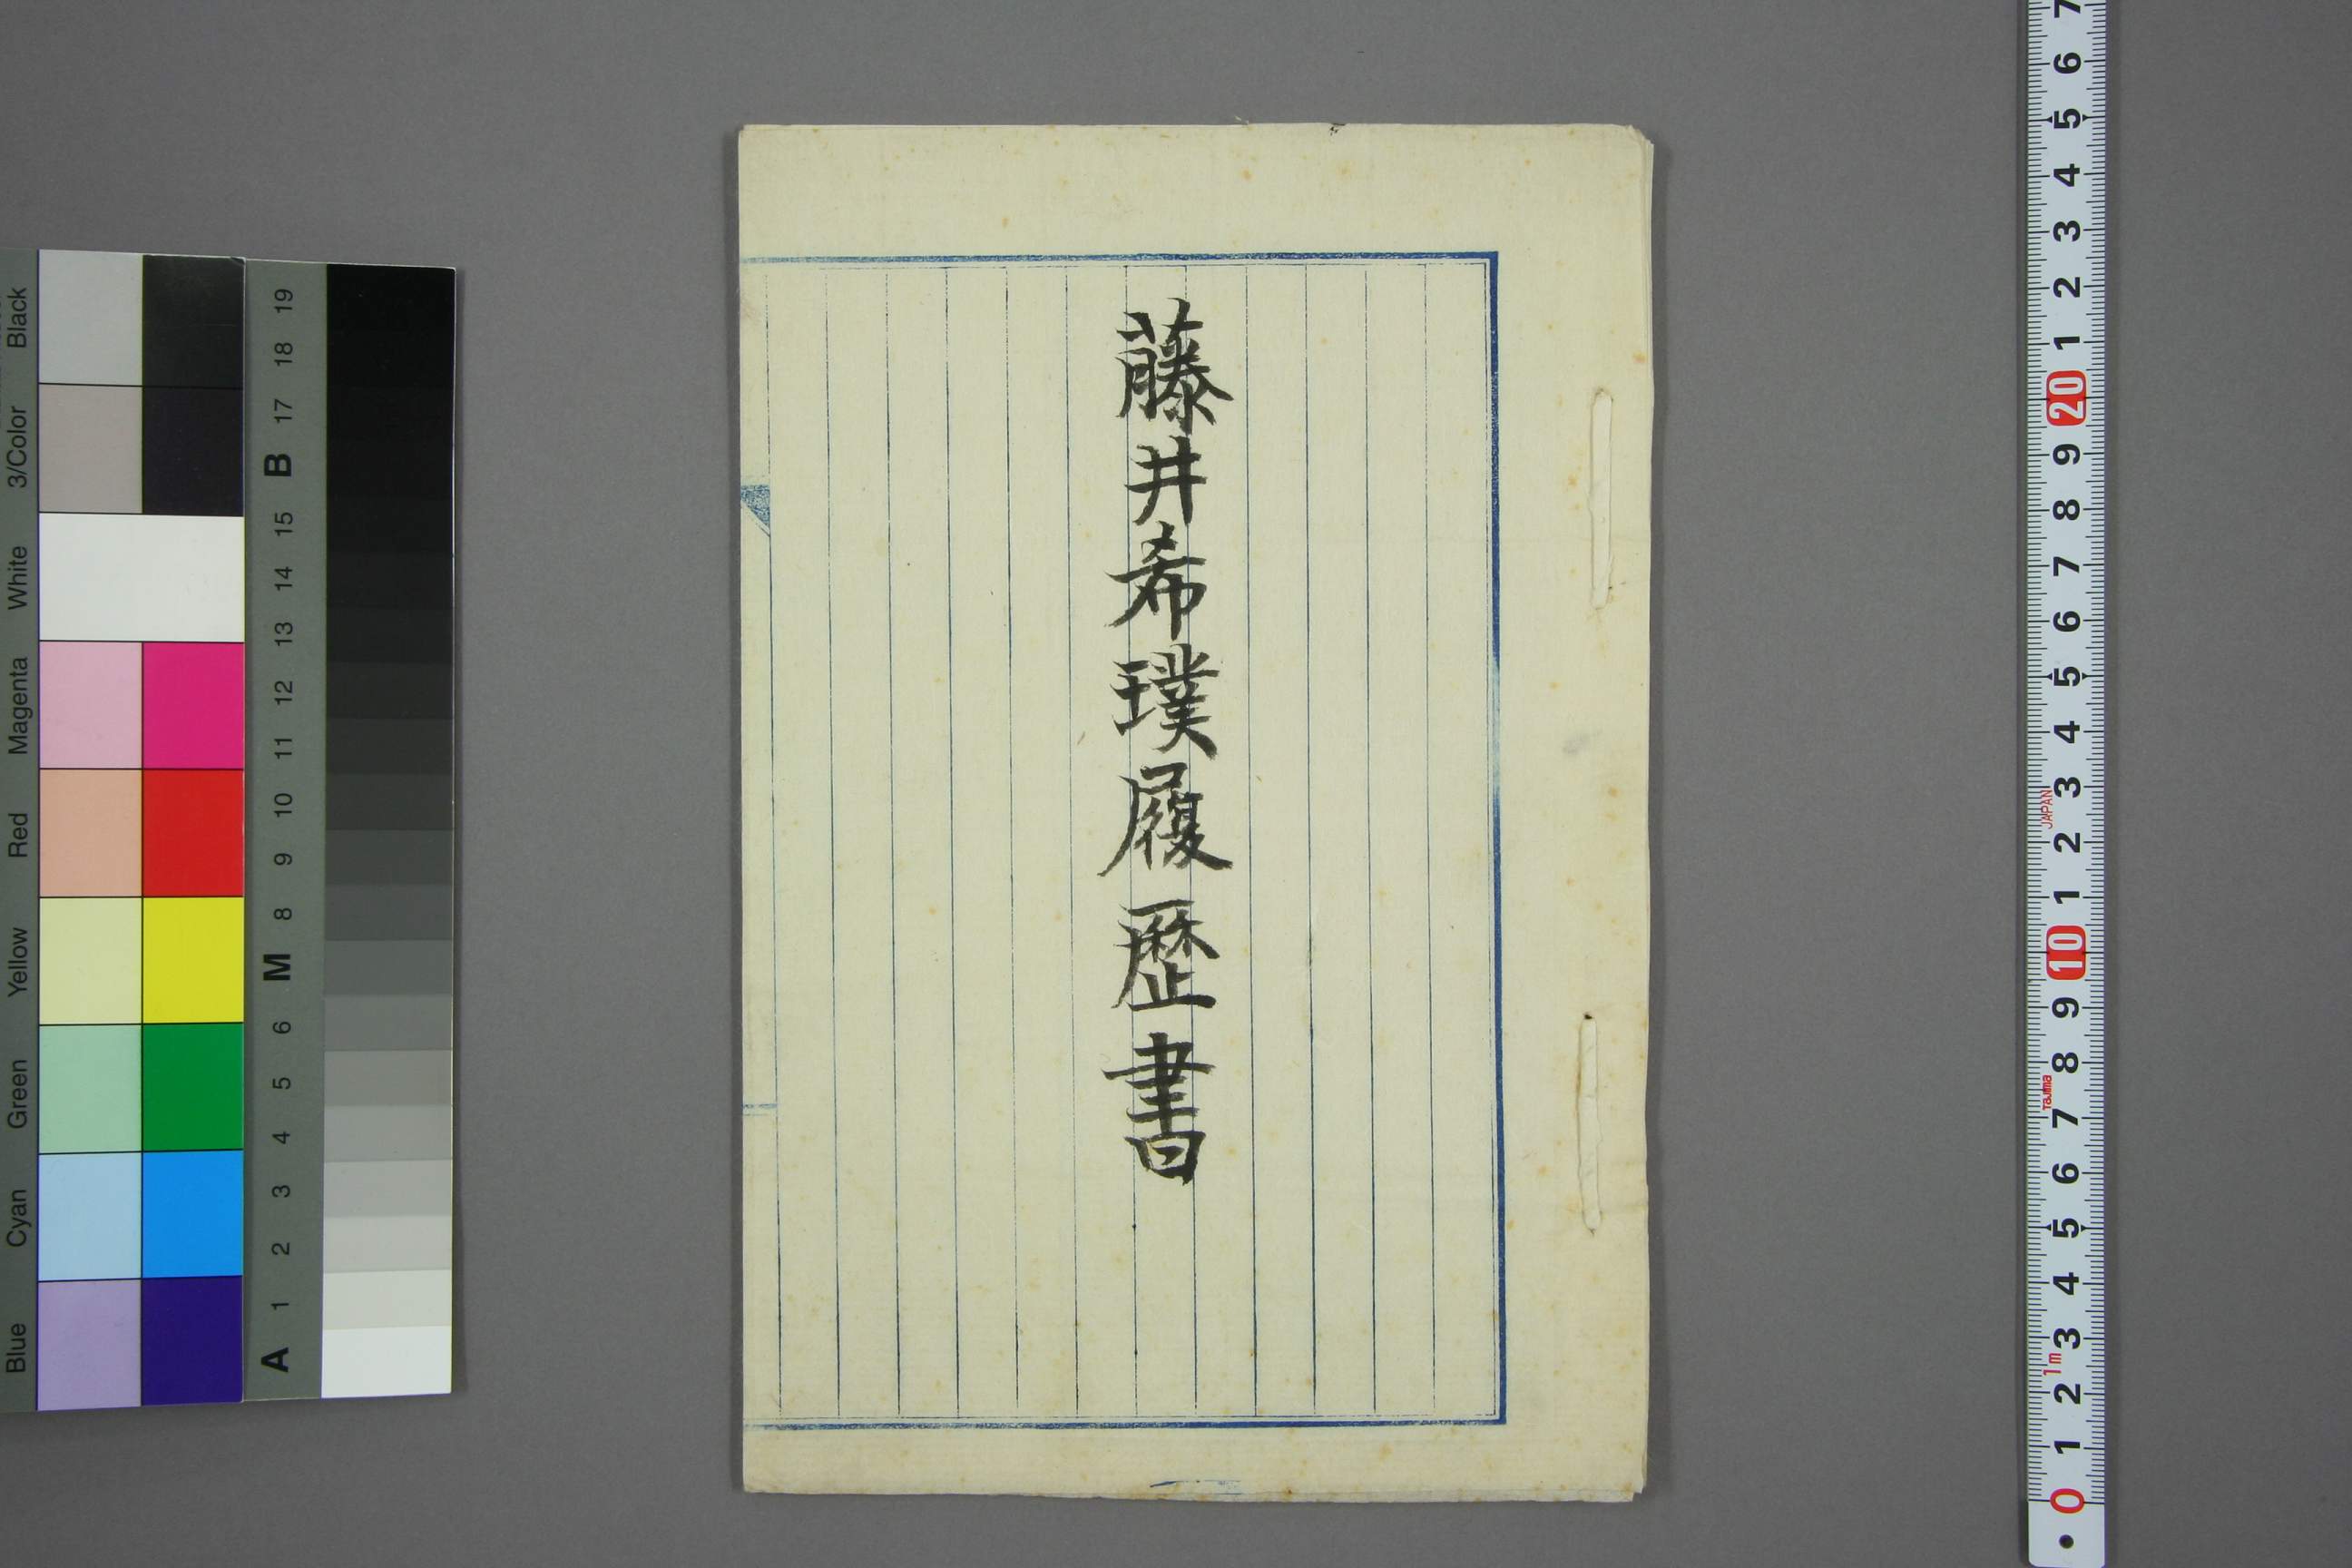 藤井希璞履歴書
Black
3/Color
White
Magenta
Red
Yellow
Green
Cyan
Blue
19
18
17
B
15
14
13
12
11
10
9
8
M
6
5
4
3
2
1
A
7
6
5
4
3
2
1
20
9
8
7
6
5
4
3
JAPAN
2
1
10
9
8
Tajima
7
6
5
4
3
1m
2
1
0